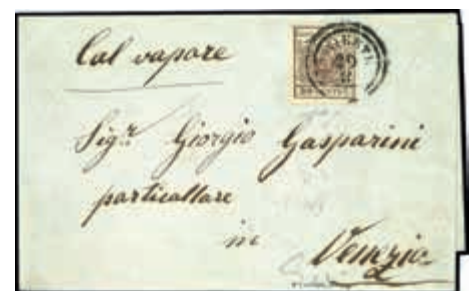 Col vapore
TRIESTE
Sigr. Giorgio Gasparini
particollare
in
Venezia